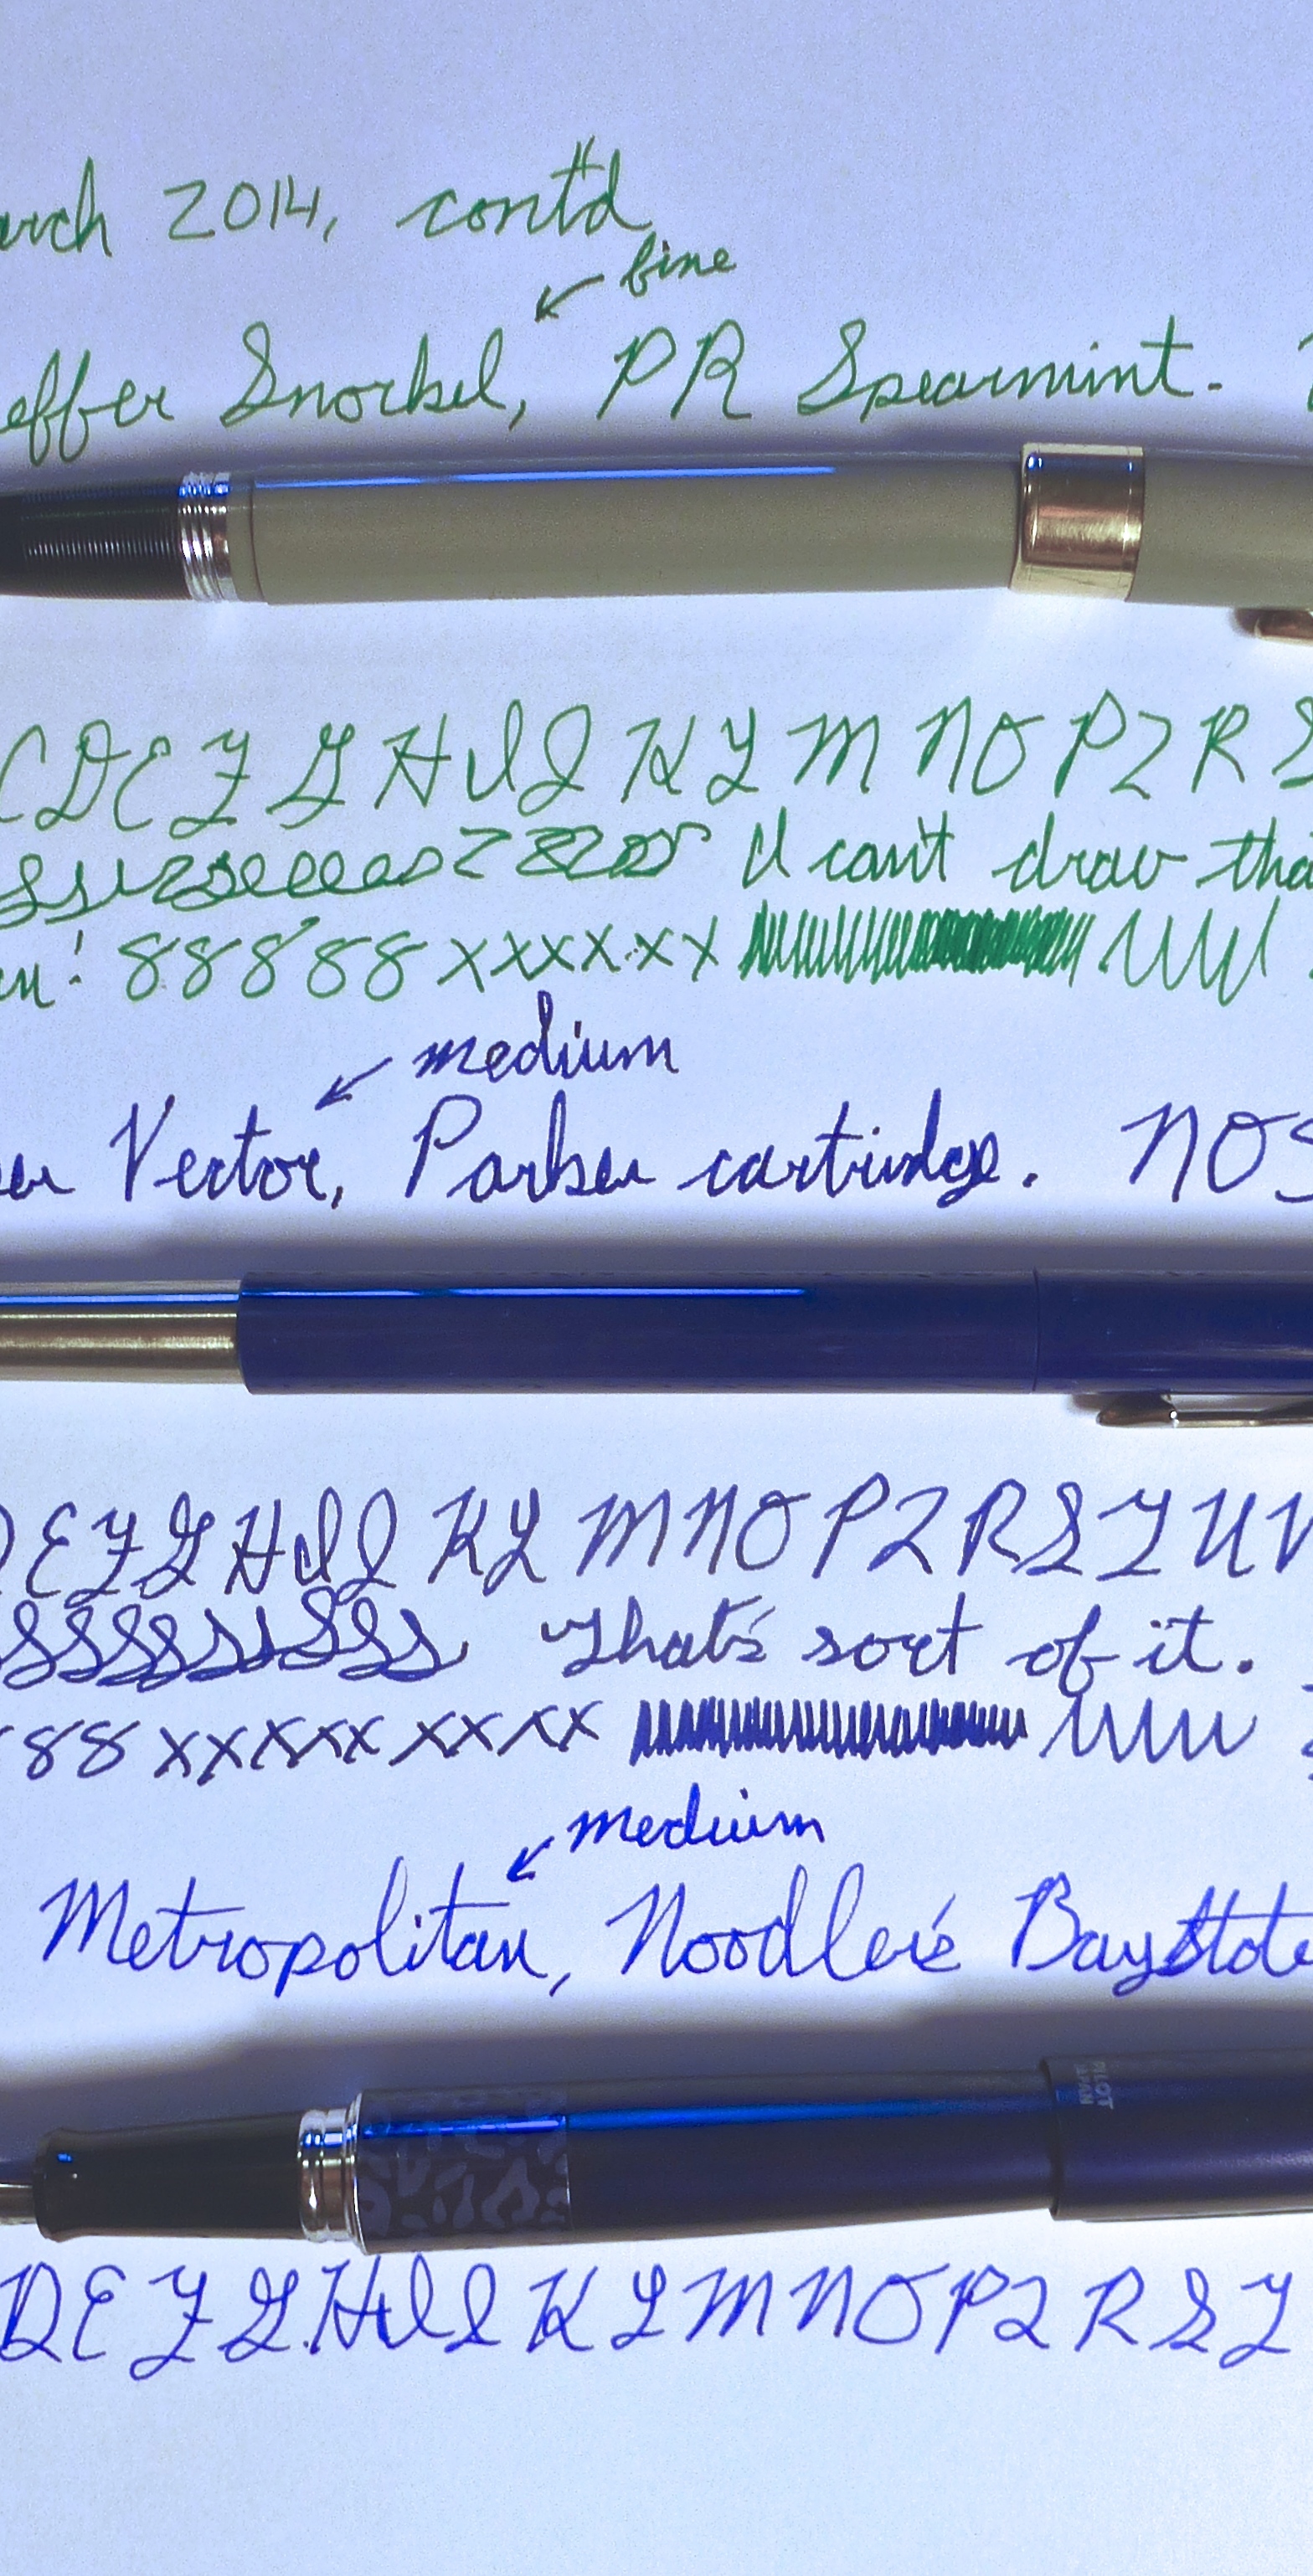 arch 2014, cont'd
fine
effer Snorkel, PR Spearmint.
CDEFGHIJKLMNOPQRS
I can't draw tha
en! 88888 xxxxxxx
medium
ker Vector, Parker cartridge. NOS
DEFGHIJKLMNOPQRSTUV
That's sort of it.
88 xxxxx xxxx
medium
Metropolitan, Noodler's Baystate
PILOT
JAPAN
DEFGHIJKLMNOPQRST